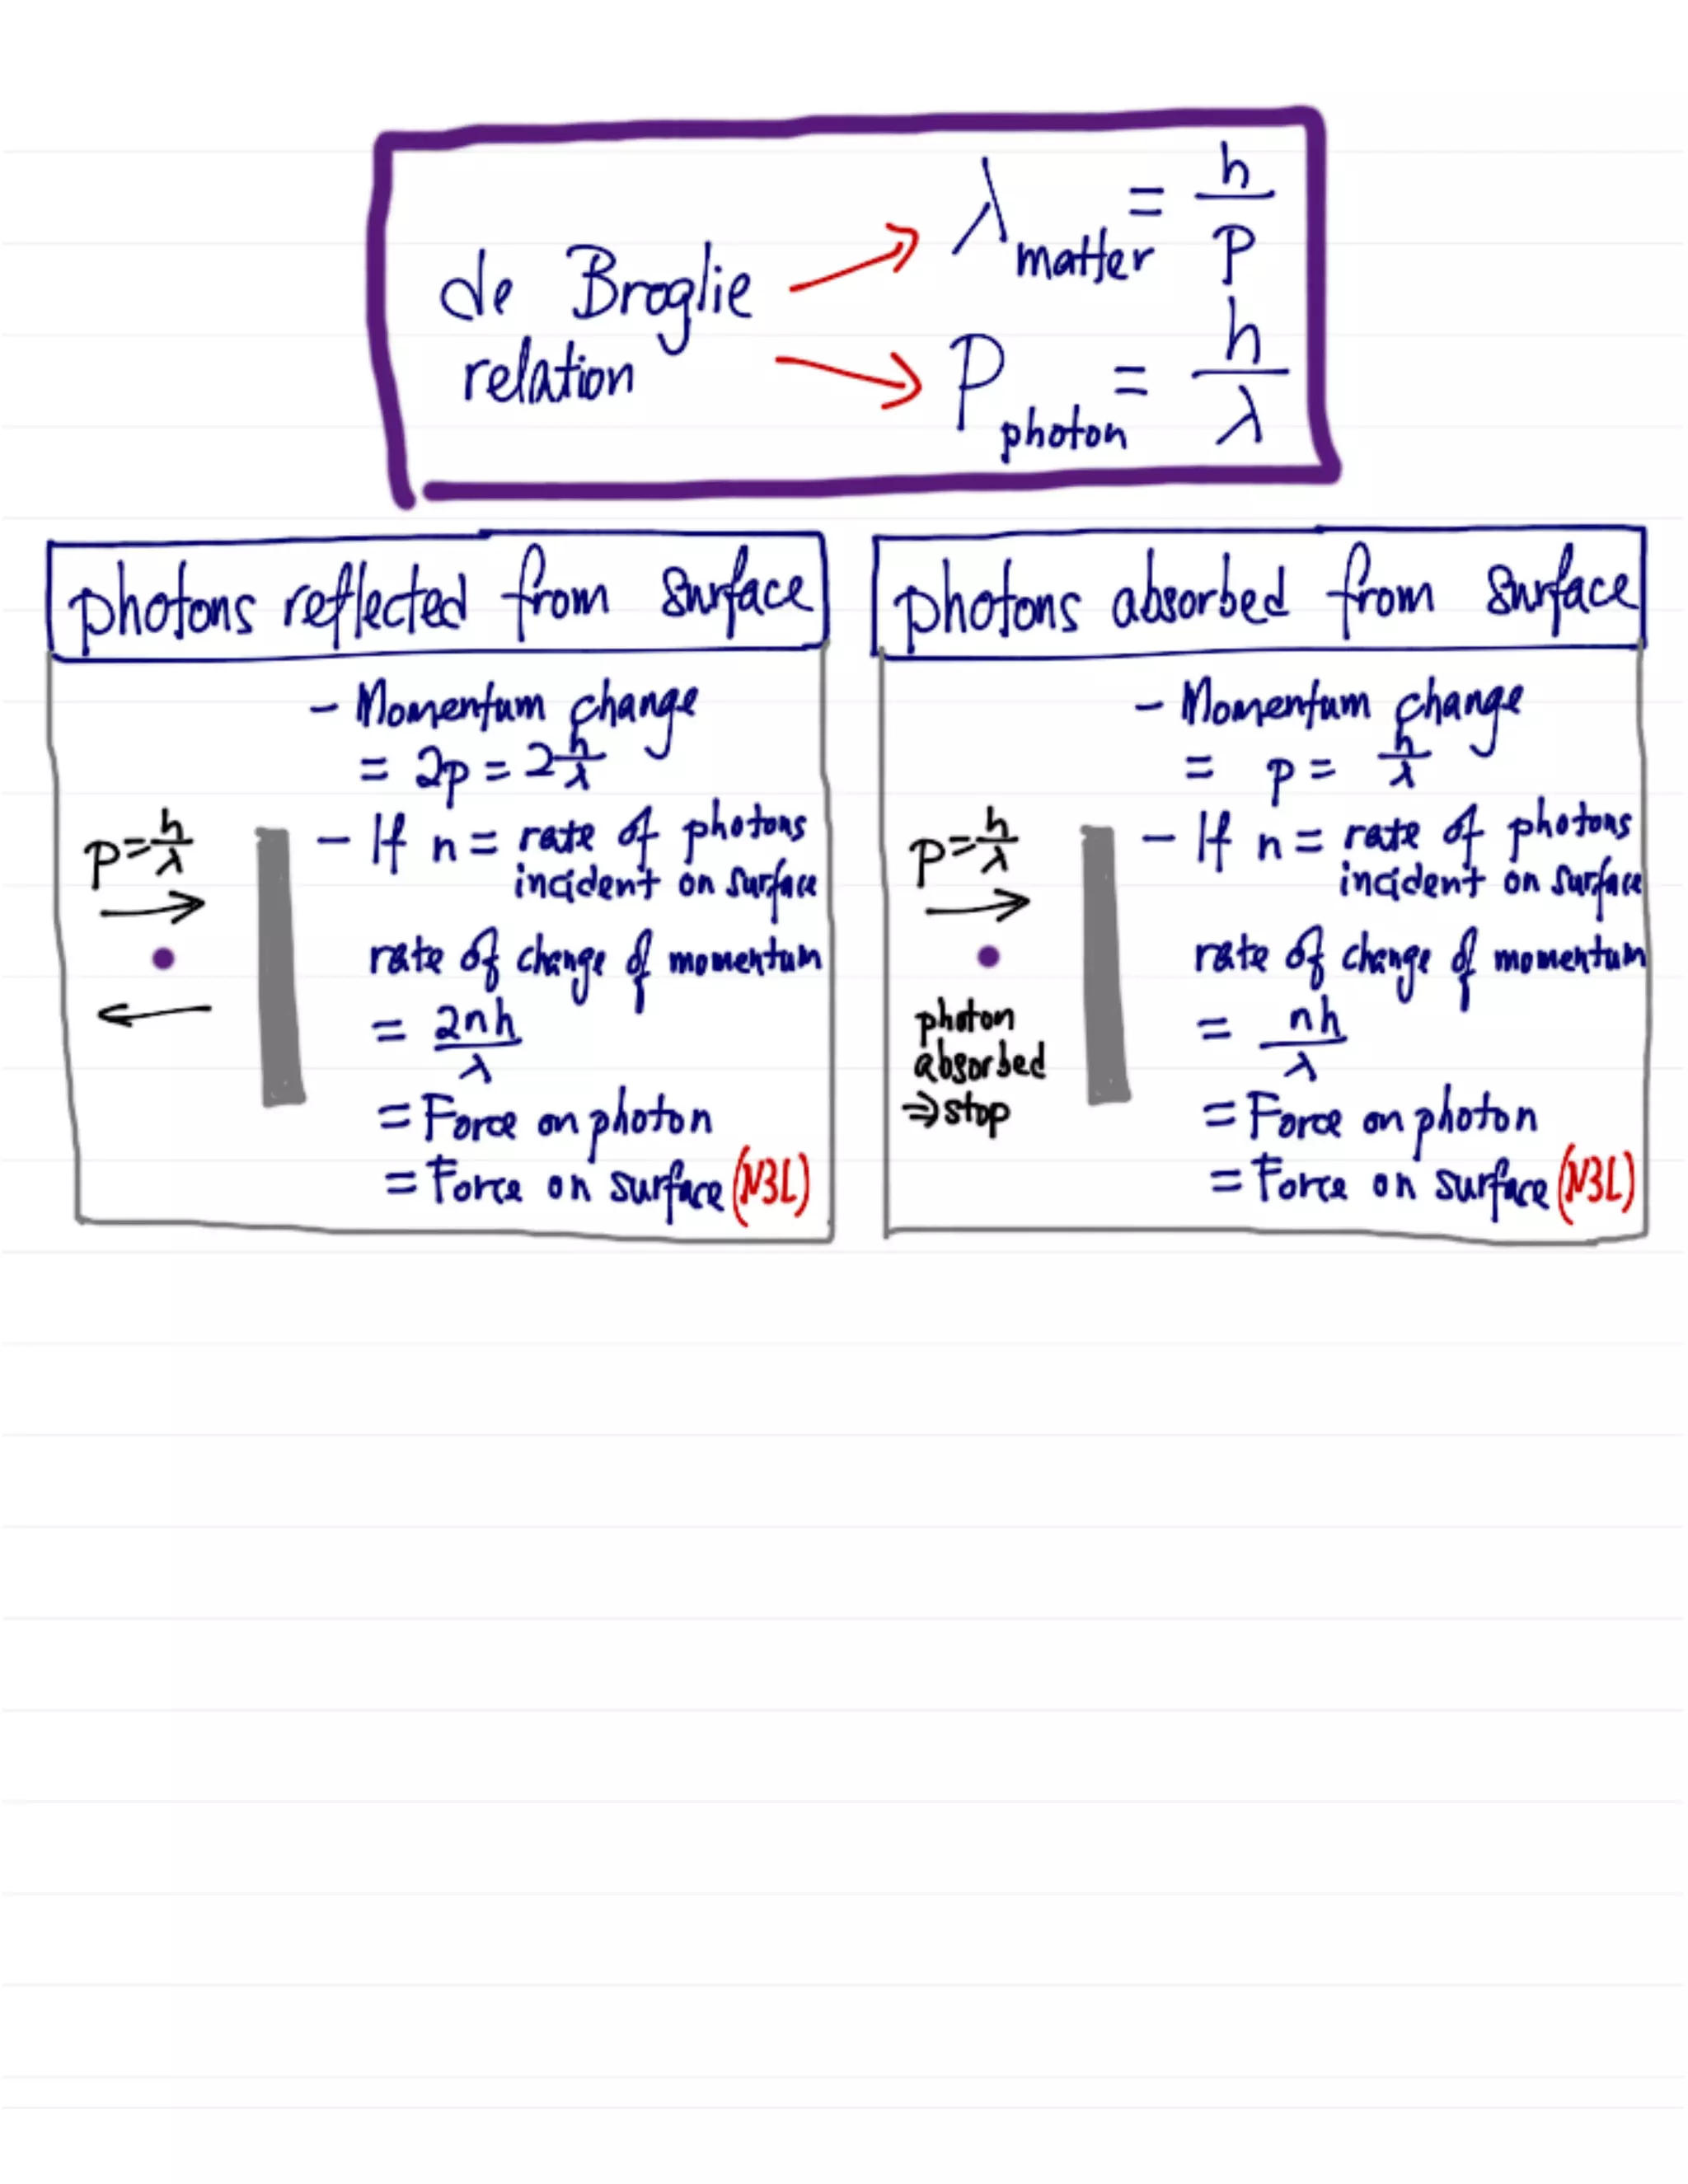 de Broglie relation
λ matter = h/p
P photon = h/λ
photons reflected from surface
- Momentum change
= 2p = 2 h/λ
p = h/λ
- If n = rate of photons
incident on surface
rate of change of momentum
= 2nh/λ
= Force on photon
= Force on surface (N3L)
photons absorbed from surface
- Momentum change
= p = h/λ
p = h/λ
- If n = rate of photons
incident on surface
rate of change of momentum
= nh/λ
photon
absorbed
⇒ stop
= Force on photon
= Force on surface (N3L)